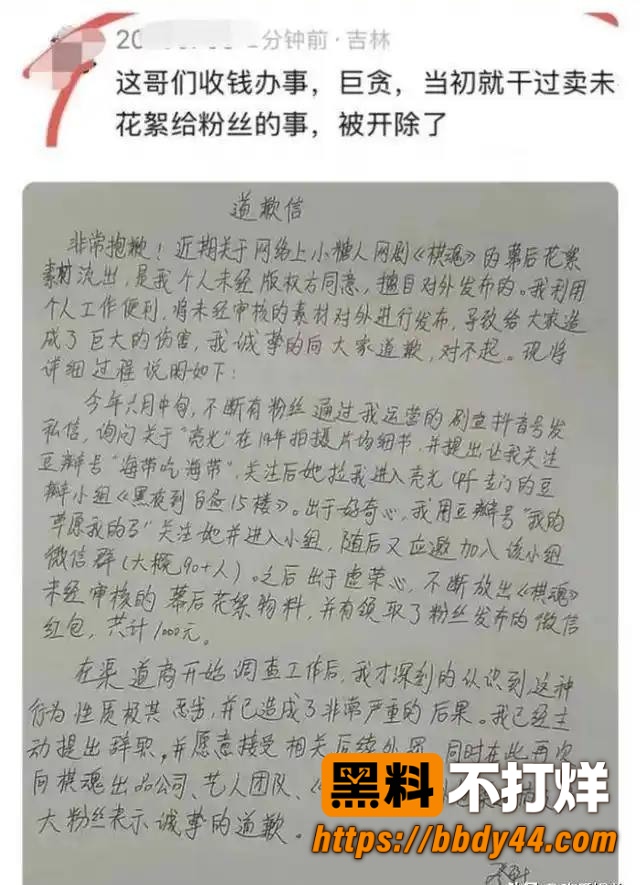 1分钟前·吉林
这哥们收钱办事，巨贪，当初就干过卖未
花絮给粉丝的事，被开除了
道歉信
非常抱歉！近期关于网络上小糖人网剧《棋魂》的幕后花絮
素材流出，是我个人未经版权方同意，擅自对外发布的。我利用
个人工作便利，将未经审核的素材对外进行发布，导致给大家造
成了巨大的伤害，我诚挚的向大家道歉，对不起。现将
详细过程说明如下：
今年六月中旬，不断有粉丝通过我运营的剧宣抖音号发
私信，询问关于“亮光”在19年拍摄片场细节，并提出让我关注
豆瓣号“海带吃海带”，关注后她拉我进入亮光CP
瓣小组《黑夜到白昼15楼》。出于好奇心，我用豆瓣号“我的
草原我的马”关注她并进入小组，随后又应邀加入该小组
微信群（大概90+人）。之后出于虚荣心，不断放出《棋魂》
未经审核的幕后花絮物料，并有领取了粉丝发布的微信
红包，共计1000元。
在渠道商开始调查工作后，我才深刻的认识到这种
行为性质极其恶劣，并已造成了非常严重的后果。我已经主
动提出辞职，并愿意接受相关后续处罚，同时在此再次
向棋魂出品公司、艺人团队、
大粉丝表示诚挚的道歉。
黑料不打烊
https://bbdy44.com